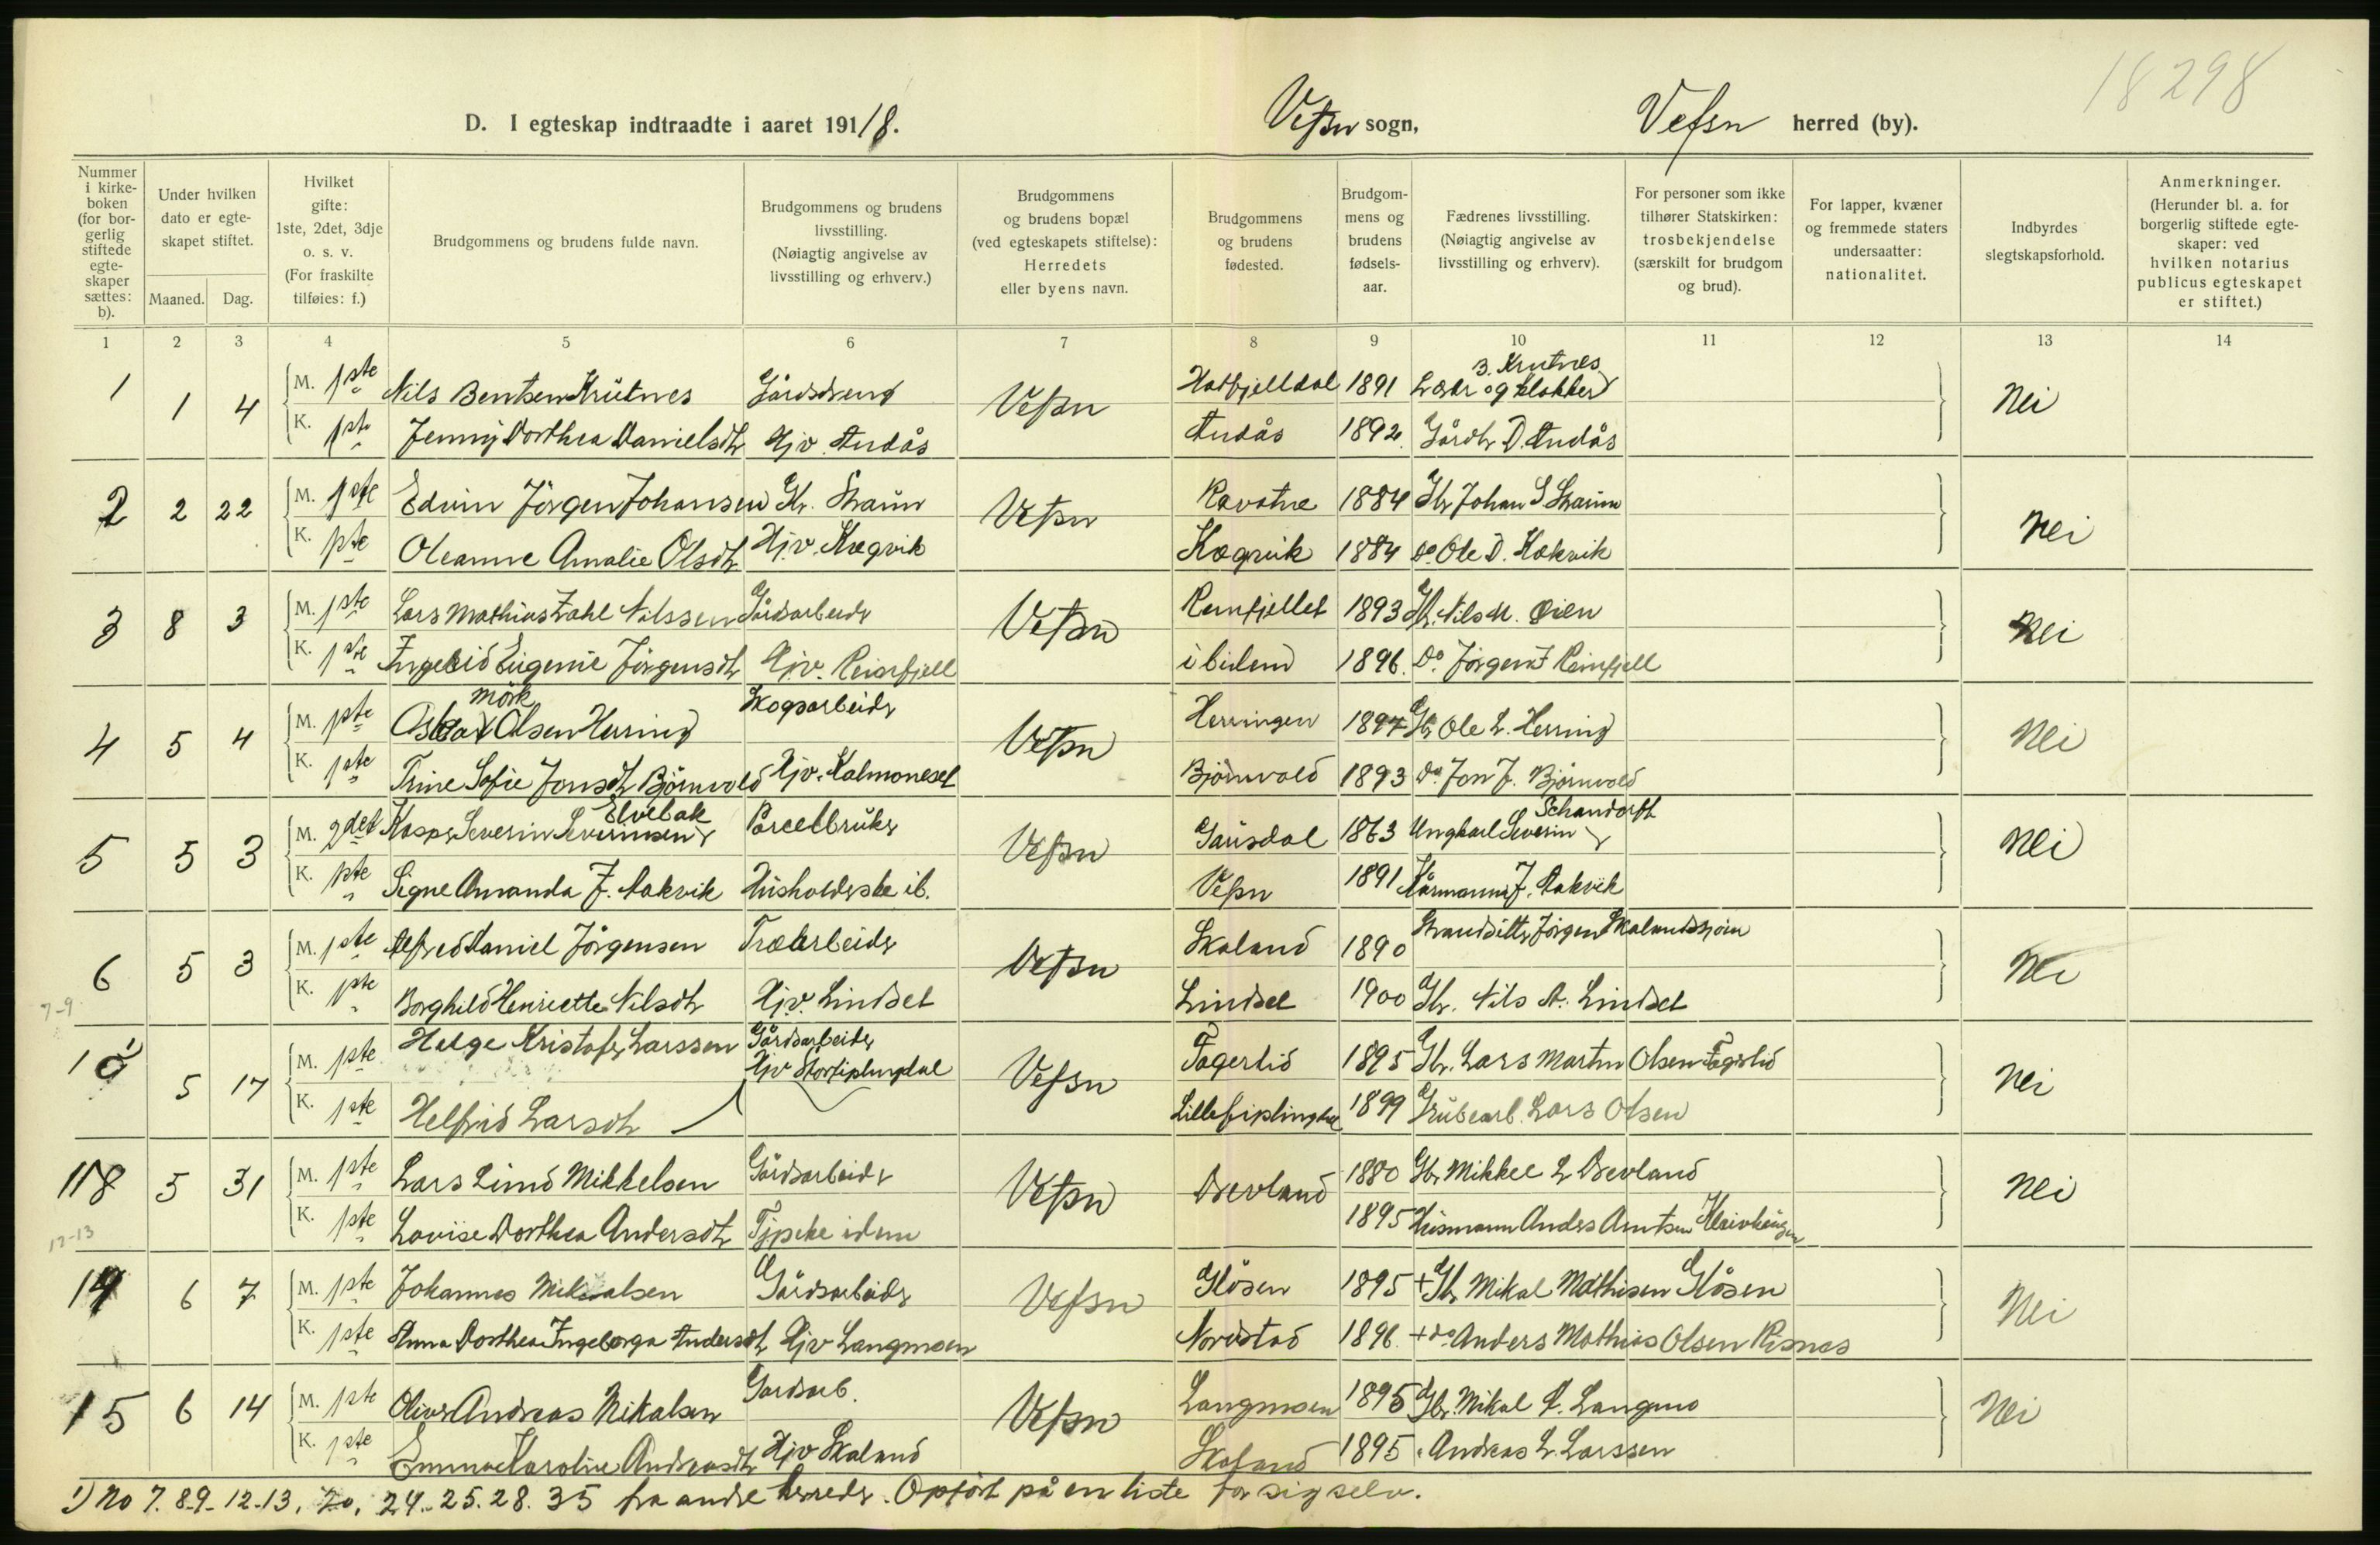 18298
D. I egteskap indtraadte i aaret 1918. Vefsn sogn, Vefsn herred (by).
Nummer i kirke-boken (for bor-gerlig stiftede egte-skaper sættes: b).
Under hvilken dato er egte-skapet stiftet.
Maaned. Dag.
Hvilket gifte: 1ste, 2det, 3dje o. s. v. (For fraskilte tilføies: f.)
Brudgommens og brudens fulde navn.
Brudgommens og brudens livsstilling. (Nøiagtig angivelse av livsstilling og erhverv.)
Brudgommens og brudens bopæl (ved egteskapets stiftelse): Herredets eller byens navn.
Brudgommens og brudens fødested.
Brudgom-mens og brudens fødsels-aar.
Fædrenes livsstilling. (Nøiagtig angivelse av livsstilling og erhverv).
For personer som ikke tilhører Statskirken: trosbekjendelse (særskilt for brudgom og brud).
For lapper, kvæner og fremmede staters undersaatter: nationalitet.
Indbyrdes slegtskapsforhold.
Anmerkninger. (Herunder bl. a. for borgerlig stiftede egte-skaper: ved hvilken notarius publicus egteskapet er stiftet.)
1 2 3 4 5 6 7 8 9 10 11 12 13 14
1 1 4 M. 1ste Nils Bentsen Krutnes Gårdsdreng Vefsn Hatfjelldal 1891 Lærer og klokker B. Krutnes Nei
K. 1ste Jenny Dorthea Danielsdtr Hjv. Andås Andås 1892. Gårdbr D. Andås
2 2 22 M. 1ste Edvin Jörgen Johansen Gbr. Vefsn 1884 Gbr Johan S. Nei
K. 1ste Oleanne Amalie Olsdtr Hjv. Kægvik Kægvik 1884 Do Ole D. Kakvik
3 8 3 M. 1ste Lars Mathias Zahl Nilssen Gårdsarbeider Vefsn Remfjellet 1893 Gbr. Nils M. Øien Nei
K. 1ste Ingebrid Eugenie Jörgensdtr Hjv. Reinfjell ibidem 1896. Do. Jörgen J Reinfjell
4 5 4 M. 1ste Oskar Mörk Olsen Herring Skogsarbeider Vefsn Herringen 1897 Gbr Ole L. Herring Nei
K. 1ste Trine Sofie Jonsdtr Björnvold Hjv. Kalmoneset Björnvold 1893 Do. Jon J. Björnvold
5 5 3 M. 2det Kasper Severin Severinsen Elvebak Parcelbruker Vefsn Gausdal 1863 Ungkarl Severin Schandorff Nei
K. 1ste Signe Amanda J. Aakvik Husholderske ib. Vefsn 1891 J. Aakvik
6 5 3 M. 1ste Alfred Daniel Jörgensen Træarbeider Vefsn Skaland 1890 Strandsitter Jörgen Nei
K. 1ste Borghild Henriette Nilsdtr Hjv. Lindset Lindset 1900 Gbr. Nils A. Lindset
7-9
10 1) 5 17 M. 1ste Helge Kristofer Larssen Gårdsarbeider Vefsn Fagerlid 1895 Gbr. Lars Martin Olsen Fagerlid Nei
K. 1ste Helfrid Larsdtr Hjv Storfiplingdal Lillefiplingdal 1899 Grubearb. Lars Olsen
11 5 31 M. 1ste Lars Lund Mikkelsen Gårdsarbeider Vefsn Drevland 1880 Gbr Mikkel L Drevland Nei
K. 1ste Lovise Dorthea Andersdtr Tjeneste idem 1895 Husmann Anders Arntsen
12-13
14 6 7 M. 1ste Johannes Mikalsen Gårdsarbeider Vefsn Glösen 1895 + Gbr Mikal Mathisen Glåsen Nei
K. 1ste Anna Dorthea Ingeborga Andersdtr Hjv Langmoen Nordstad 1896 + do Anders Mathias Olsen Risnes
15 6 14 M. 1ste Oliver Andreas Mikalsen Gardsarb. Vefsn Langmoen 1895 Gbr. Mikal A. Langmo Nei
K. 1ste Emma Karoline Andreasdtr Hjv Skaland Skaland 1895 Andreas L. Larssen
1) No 7. 8-9-12-13. 20. 24. 25. 28. 35 fra andre herreder. Opfört på en liste for sig selv.